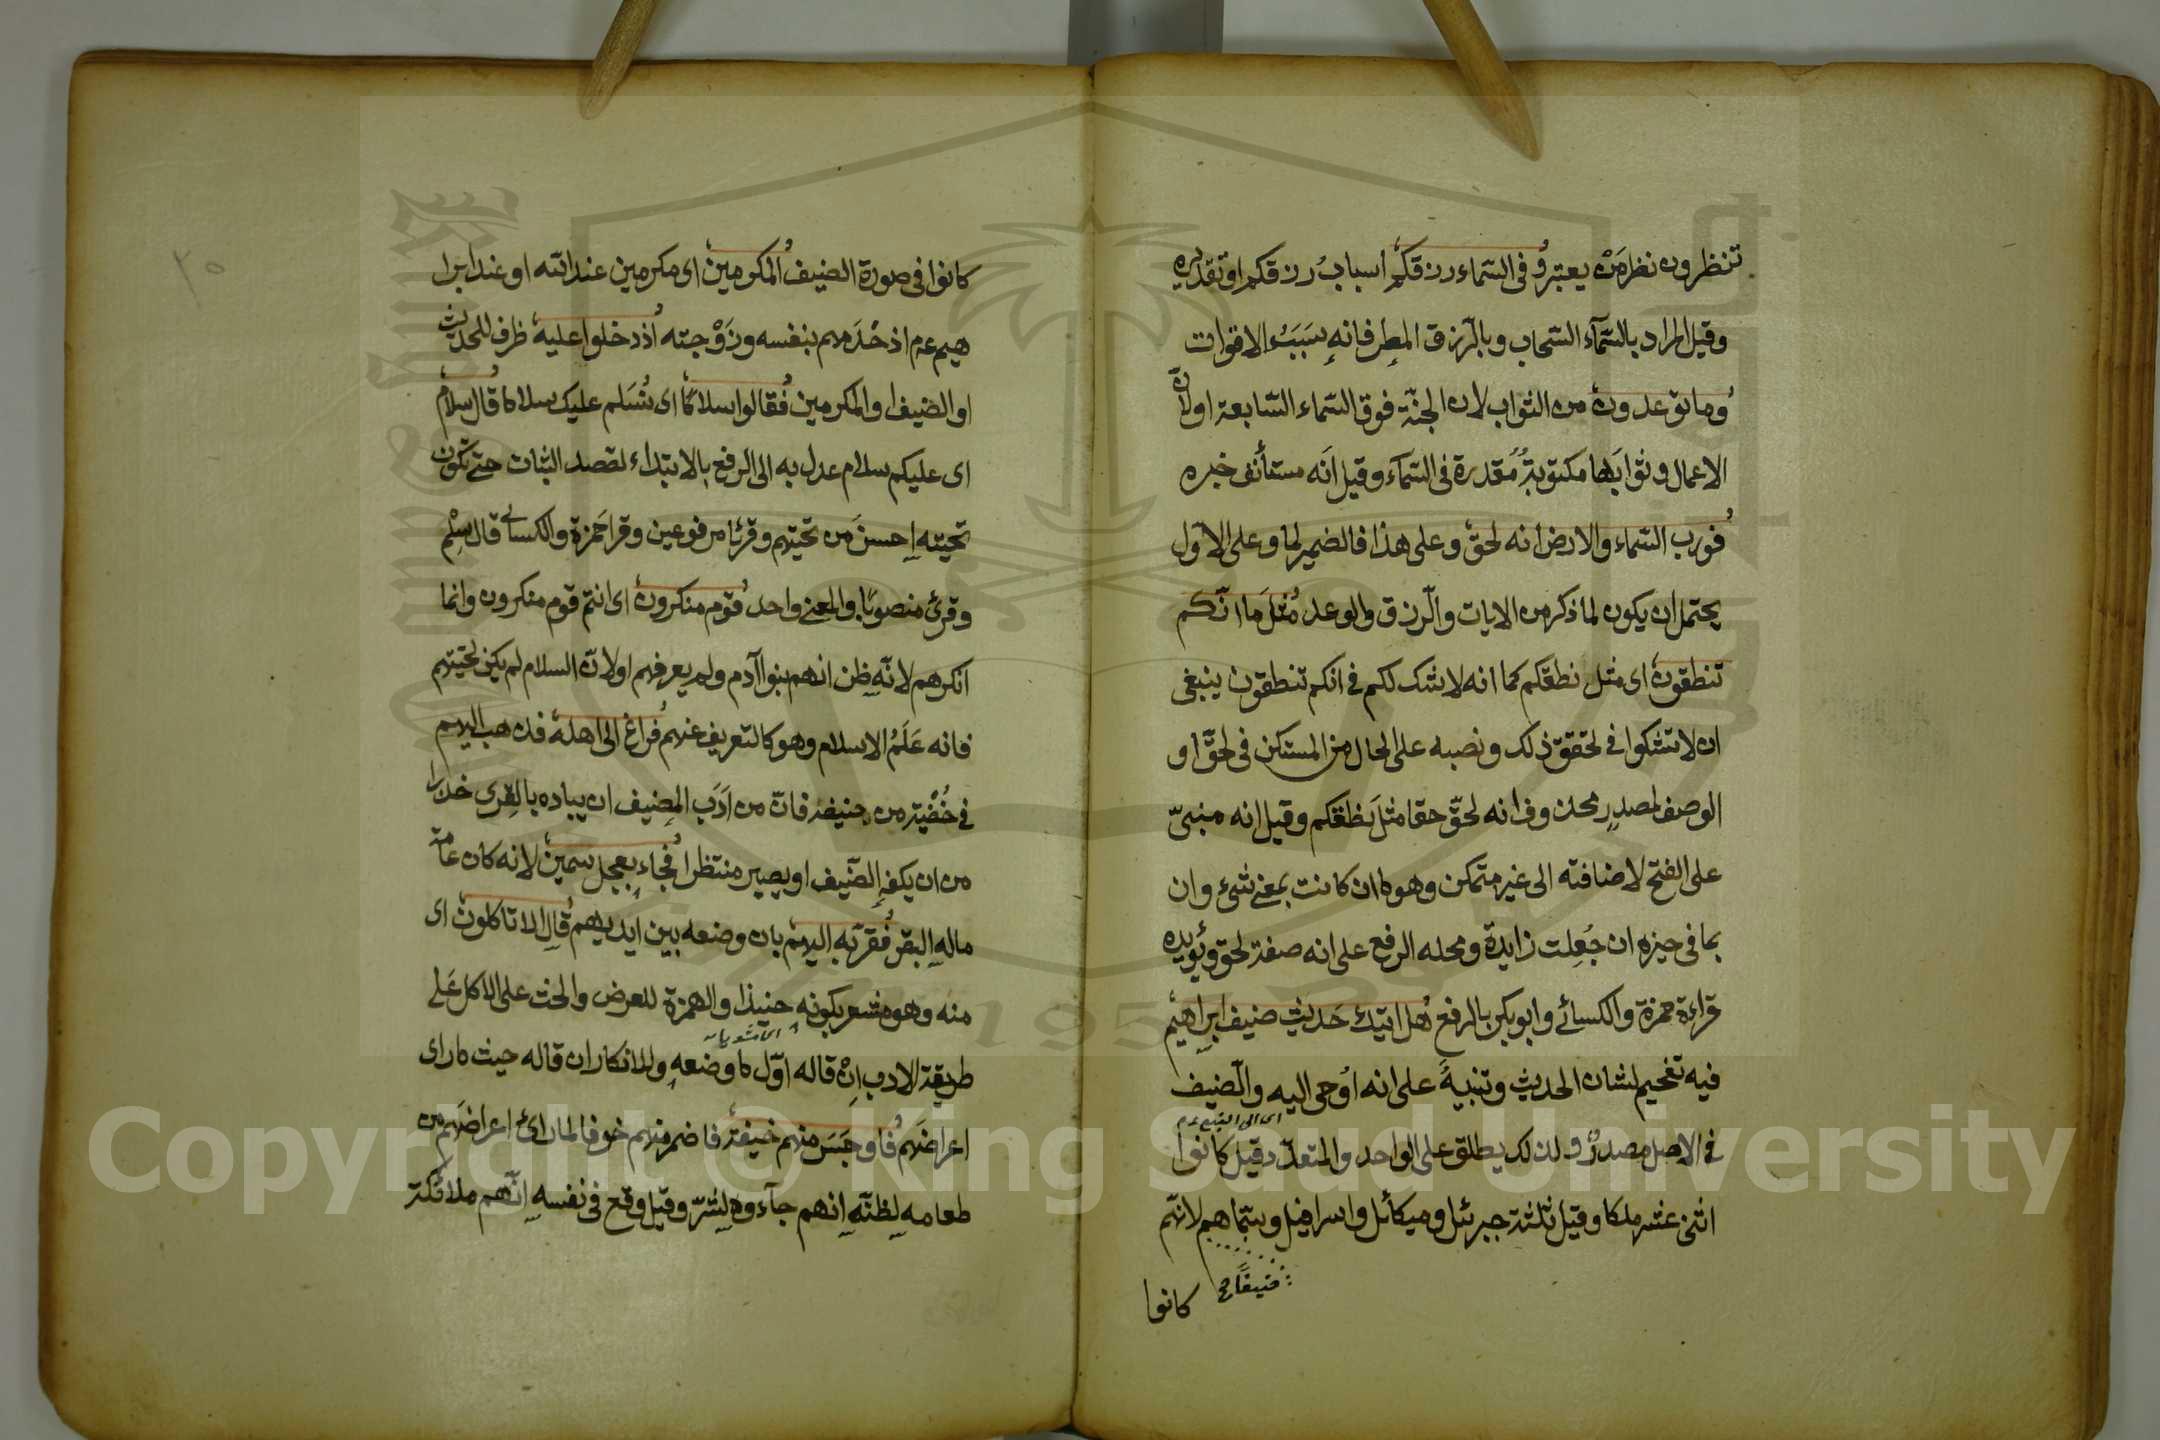 تنظرون نظر مَنْ يعتبر وفى السّماء رزقكم أسبابُ رزقكم او تقديره
وقيل المراد بالسّمآء السّحاب وبالرّزق المطر فانه سَبَبُ الاقوات
وما توعدون من الثواب لان الجنّة فوق السّماء السّابعة او لانّ
الاعمال وثوابَها مكتوبةٌ مُقدرة فى السّمآء وقيل اَنه مستأنف خبره
فورب السّماء والارض انه لحق وعلى هذا فالضمير لما وعلى الاول
يحتمل ان يكون لما ذكر من الايات والّرزق والوعد مثلَ ما انّكم
تنطقون اى مثل نطقكم كما انه لا شك لكم فى انكم تنطقون ينبغى
ان لا تشكوا فى تحقق ذلك ونصبه على الحال من المستكن فى لحقّ او
الوصف لمصدر محذوف انه لحقّ حقا مثلَ نطقكم وقيل انه مبنىّ
على الفتح لاضافته الى غير متمكن وهو ما ان كانت بمعنى شئ وان
بما فى حيزه ان جُعِلت زايدة ومحله الرفع على انه صفة لحق ويُؤيده
قراءة حمزة والكسائى وابو بكر بالرفع هل اتيك حَديث ضيف ابراهيم
فيه تفخيم لشان الحديث وتنبيهٌ على انه اُوحى اليه والّضيف
اى الى النبى عم
فى الاصل مصدرٌ ولذلك يطلق على الواحد والمتعدّد قيل كانوا
اثنى عشر ملكا وقيل ثلثة جبرئل وميكائل واسرافيل وسمّاهم لانهم
ضيفًا صح
كانوا
كانوا فى صورة الضيف المكرمين اى مكرمين عند الله او عند ابرا
هيم عم اذ خدَمهم بنفسه وزَوْجته اذ دخلوا عليه ظرف للحديث
او الضيف او المكرمين فقالوا سلامًا اى نُسَلم عليك سلاما قال سلام
اى عليكم سلام عدل به الى الرفع بالابتداء لقصد الثبات حتى تكون
تحيته احسنَ من تحيتهم وقرئا مرفوعين وقرا حَمزة والكسائى قال سِلْم
وقرئ منصوبًا والمعنى واحد قوم منكرون اى انتم قوم منكرون وانما
انكرهم لانّه ظن انهم بنوا آدم ولم يعرفهم او لانّ السلام لم يكن تحيتهم
فانه عَلَمُ الاسلام وهو كالتعريف عنهم فراغ الى اهله فذهب اليهم
فى خُفْيَة من ضيفه فانّ من اَدَب المضيف ان يباده بالقِرى حذرا
من ان يكفه الضّيف او يصير منتظرا فجاء بعجل سمين لانه كان عامة
ماله البقر فقرّبه اليهم بان وضعه بين ايديهم قال الا تاكلون اى
منه وهو مشعر بكونه حنيذا والهمزة للعرض والحث على الاكل عَلى
اى مشويا
طريقة الادب اِنْ قاله اوّل ما وضعه وللانكار ان قاله حيث ما راى
اعراضَهم فاوجَسَ منهم خيفة فاضمر منهم خوفا لما رائ اعراضَهم من
طعامه لظنّه انهم جآءوه لِشَرّ وقيل وقع فى نفسه انّهم ملائكة
Copyright © King Saud University